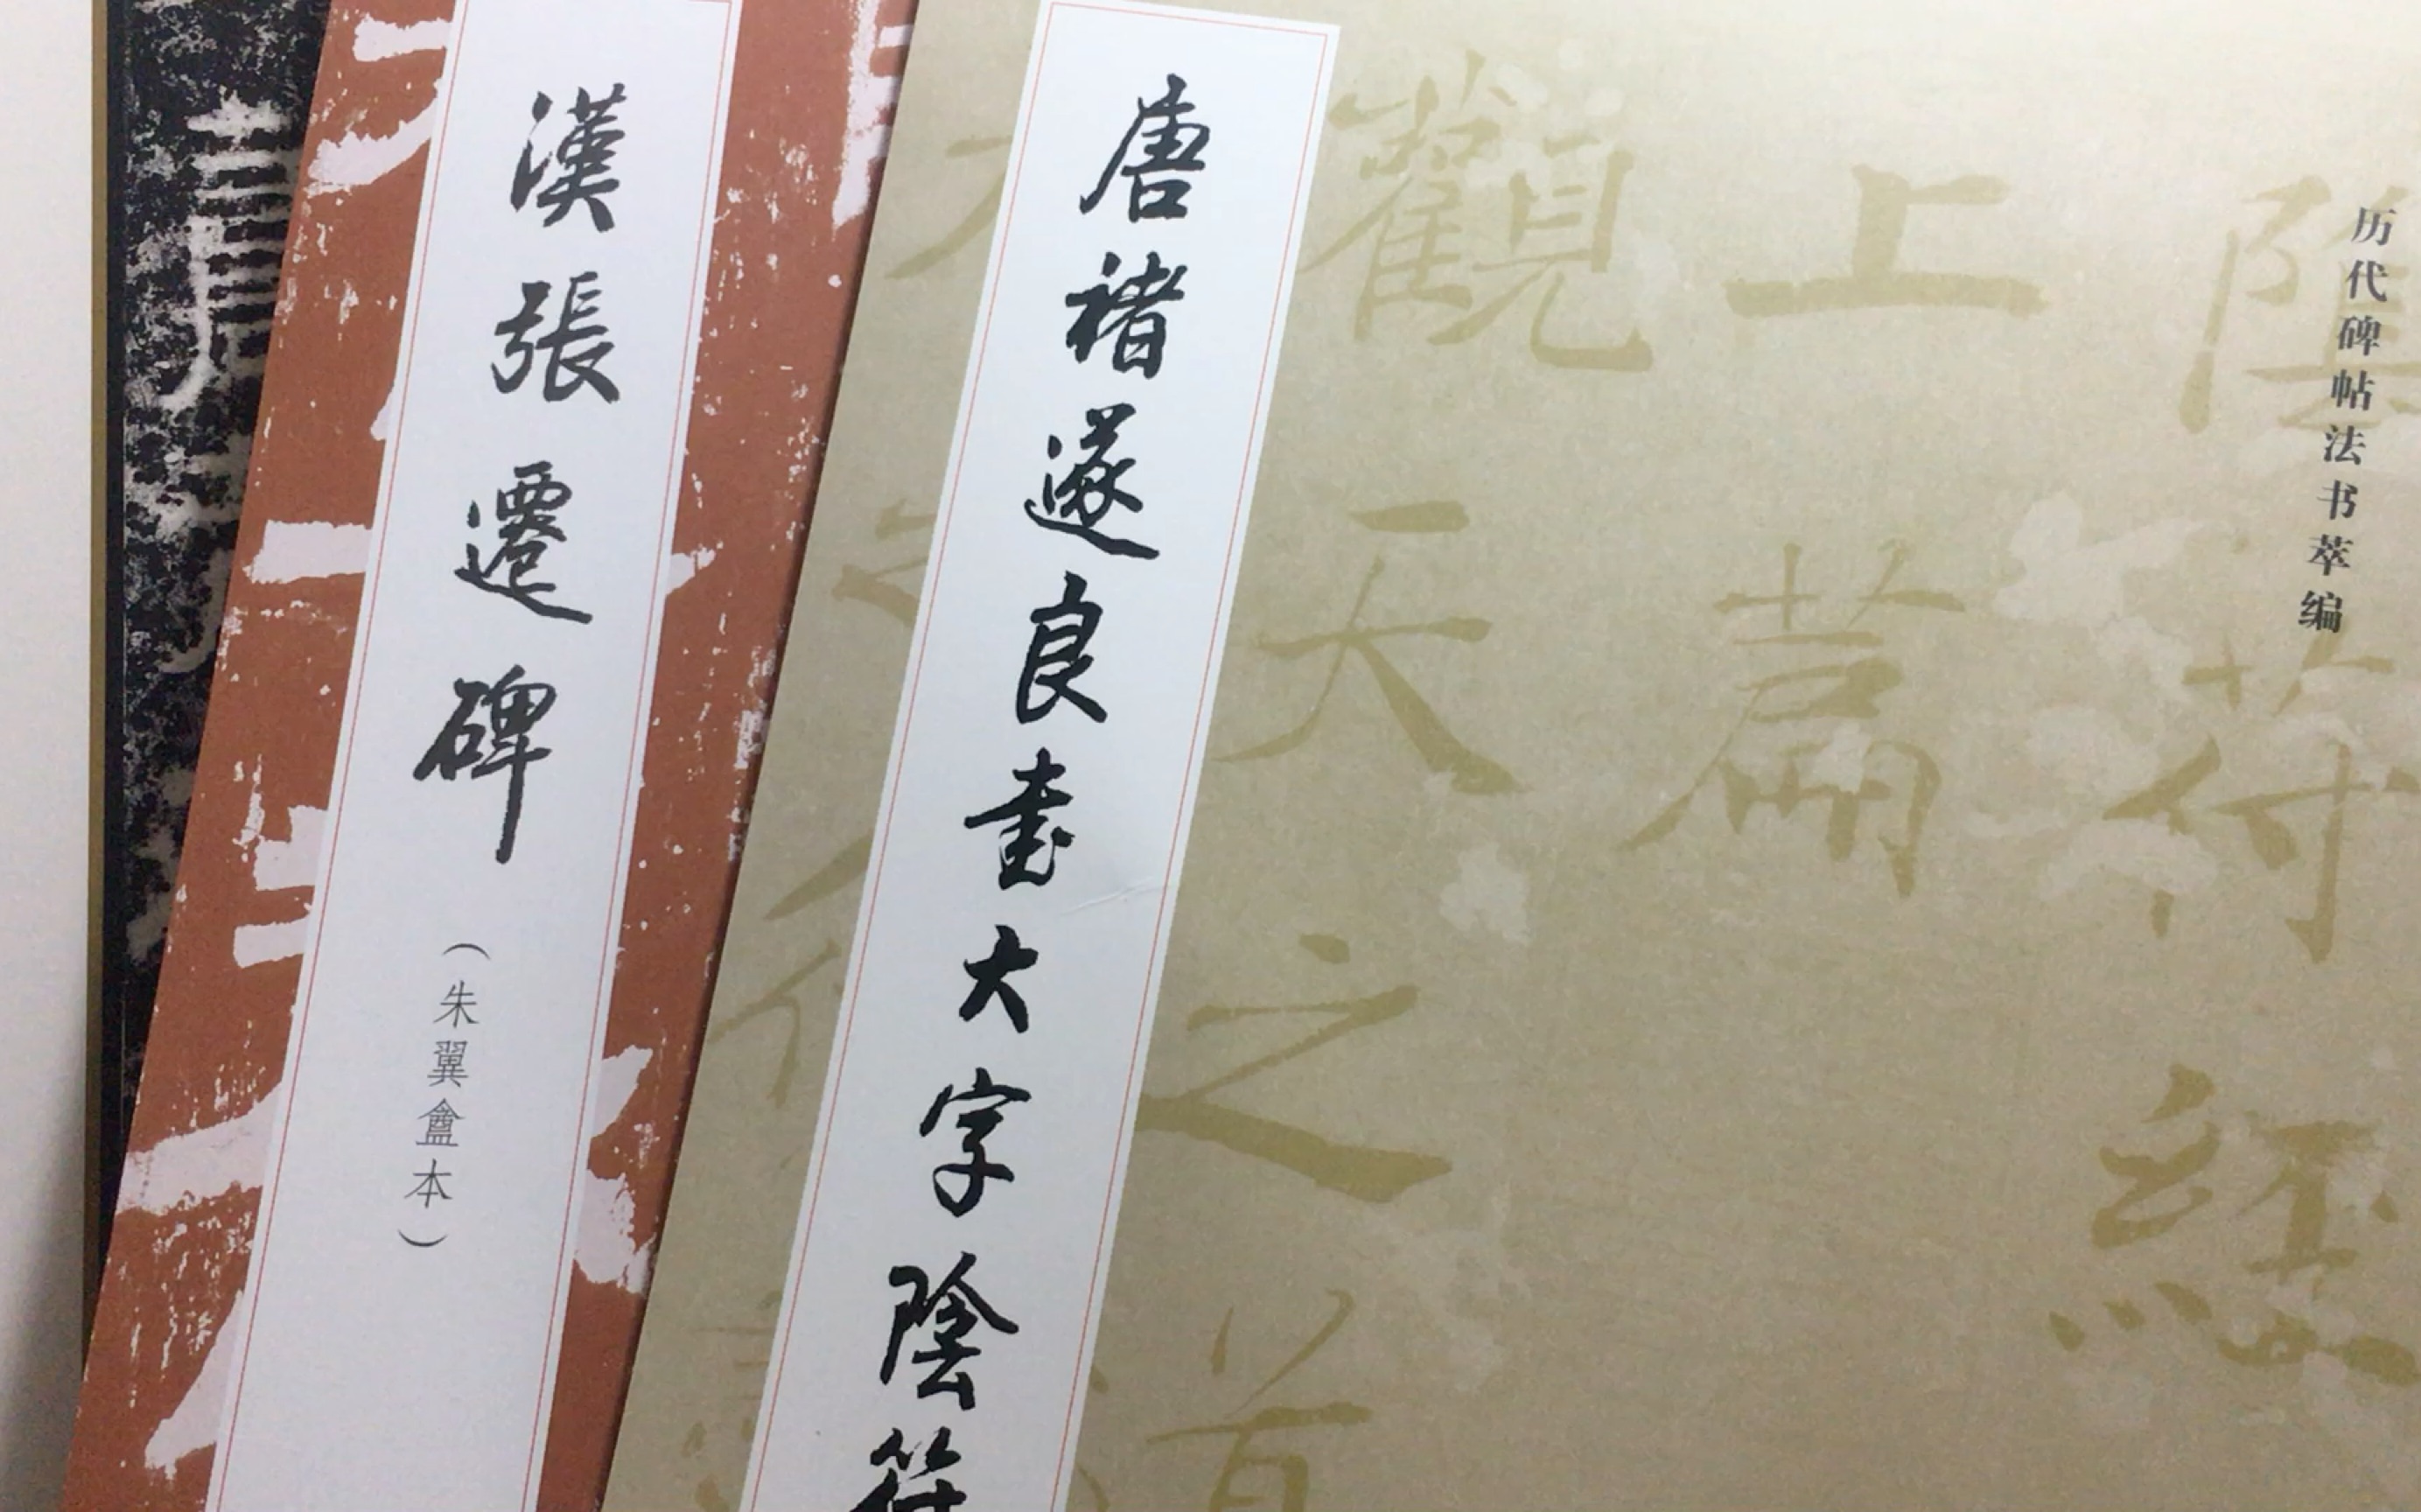 历代碑帖法书萃编
陰符經
上篇
觀天之道
唐褚遂良書大字陰符
漢張遷碑
（朱翼盦本）